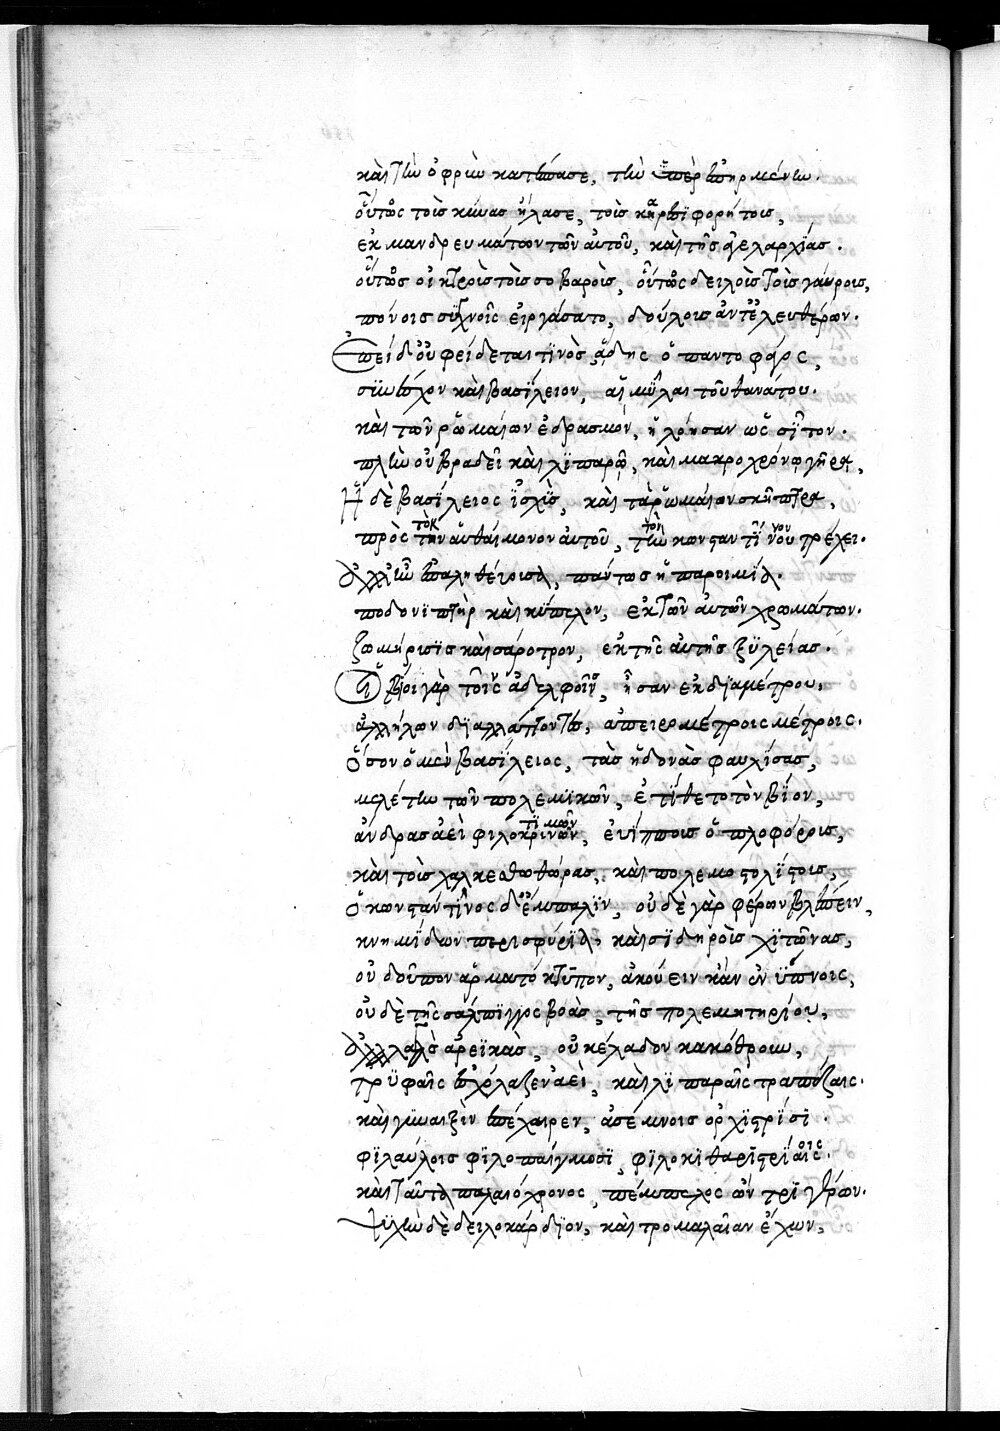 καὶ τὴν ὀφρὺν κατέσπασε, τὴν ὑπὲρ ἐπῃρμένην.
οὕτως τοὺς κύνας ἤλασε, τοὺς
ἐκ μανδρευμάτων τῶν αὐτοῦ, καὶ τῆς ἀγελαρχίας.
οὕτως οἰκτροῖς τοῖς σοβαροῖς, οὕτως δειλοῖς τοῖς γαύροις,
πόνοις συχνοῖς εἰργάσατο, δούλοις ἀντ' ἐλευθέρων.
Ἐπεὶ δ' οὐ φείδεταί τινος, ᾅδης ὁ παντοφάγος,
καὶ βασίλειον, αἱ μύλαι τοῦ θανάτου.
καὶ τῶν ῥωμαίων ἑδρασμόν, ἠλόησαν ὡς σῖτον.
πολιῷ οὐ βραδεῖ καὶ λιπαρῷ, καὶ μακροχρόνῳ γήρᾳ,
Ἡ δὲ βασίλειος ἰσχὺς, καὶ τὰ ῥωμαίων σκῆπτρα,
πρὸς τὴν αὐθαίμονον αὐτοῦ, τὴν κωνσταντίνου τρέχει.
Ἀλλ' ἦν ἐπαληθεύουσα, πάντως ἡ παροιμία.
ποδονιπτὴρ καὶ κύπελον, ἐκ τῶν αὐτῶν χρωμάτων.
ζωμήρισις καὶ σάροτρον, ἐκ τῆς αὐτῆς ξυλείας.
Οἱ βίοι γὰρ τοῖς ἀδελφοῖς, ἦσαν ἐκ διαμέτρου,
ἀλλήλων διαλλάττοντες, ἀπειρομέτροις μέτροις.
Ὅσον ὁ μὲν βασίλειος, τὰς ἡδονὰς φαυλίσας,
μελέτην τῶν πολεμικῶν, ἐτίθετο τὸν βίον,
ἄνδρας ἀεὶ φιλοκρινῶν, τιμῶν εὐίπποις ὁπλοφόροις,
καὶ τοῖς χαλκεοθώθωρας, καὶ πολεμοστολίστοις,
Ὁ κωνσταντῖνος δ' ἔμπαλιν, οὐδὲ γὰρ φέρων βλέπειν,
κνημίδων περισφύρια, καὶ σιδηροῦς χιτῶνας,
οὐ δοῦπον ἁρματόκτυπον, ἀκούειν κἂν ἐν ὕπνοις,
οὐδὲ τῆς σάλπιγγος βοὰς, τῆς πολεμητηρίου,
ἀρεϊκὰς, οὐ κέλαδον κακόθρουν,
τρυφαῖς ἐσχόλαζεν ἀεὶ, καὶ λιπαραῖς τραπέζαις.
καὶ γυναιξὶν ἐπέχαιρεν, ἀσέμνοις ὀρχιστρίσι.
φιλαύλοις φιλοπαίγμοσι, φιλοκιθαριστρίαις.
καὶ ταῦτα παλαιόχρονος, πέμπελος ὢν τριγέρων.
ψυχὴν δὲ δειλοκάρδιον, καὶ τρομαλαίαν ἔχων,